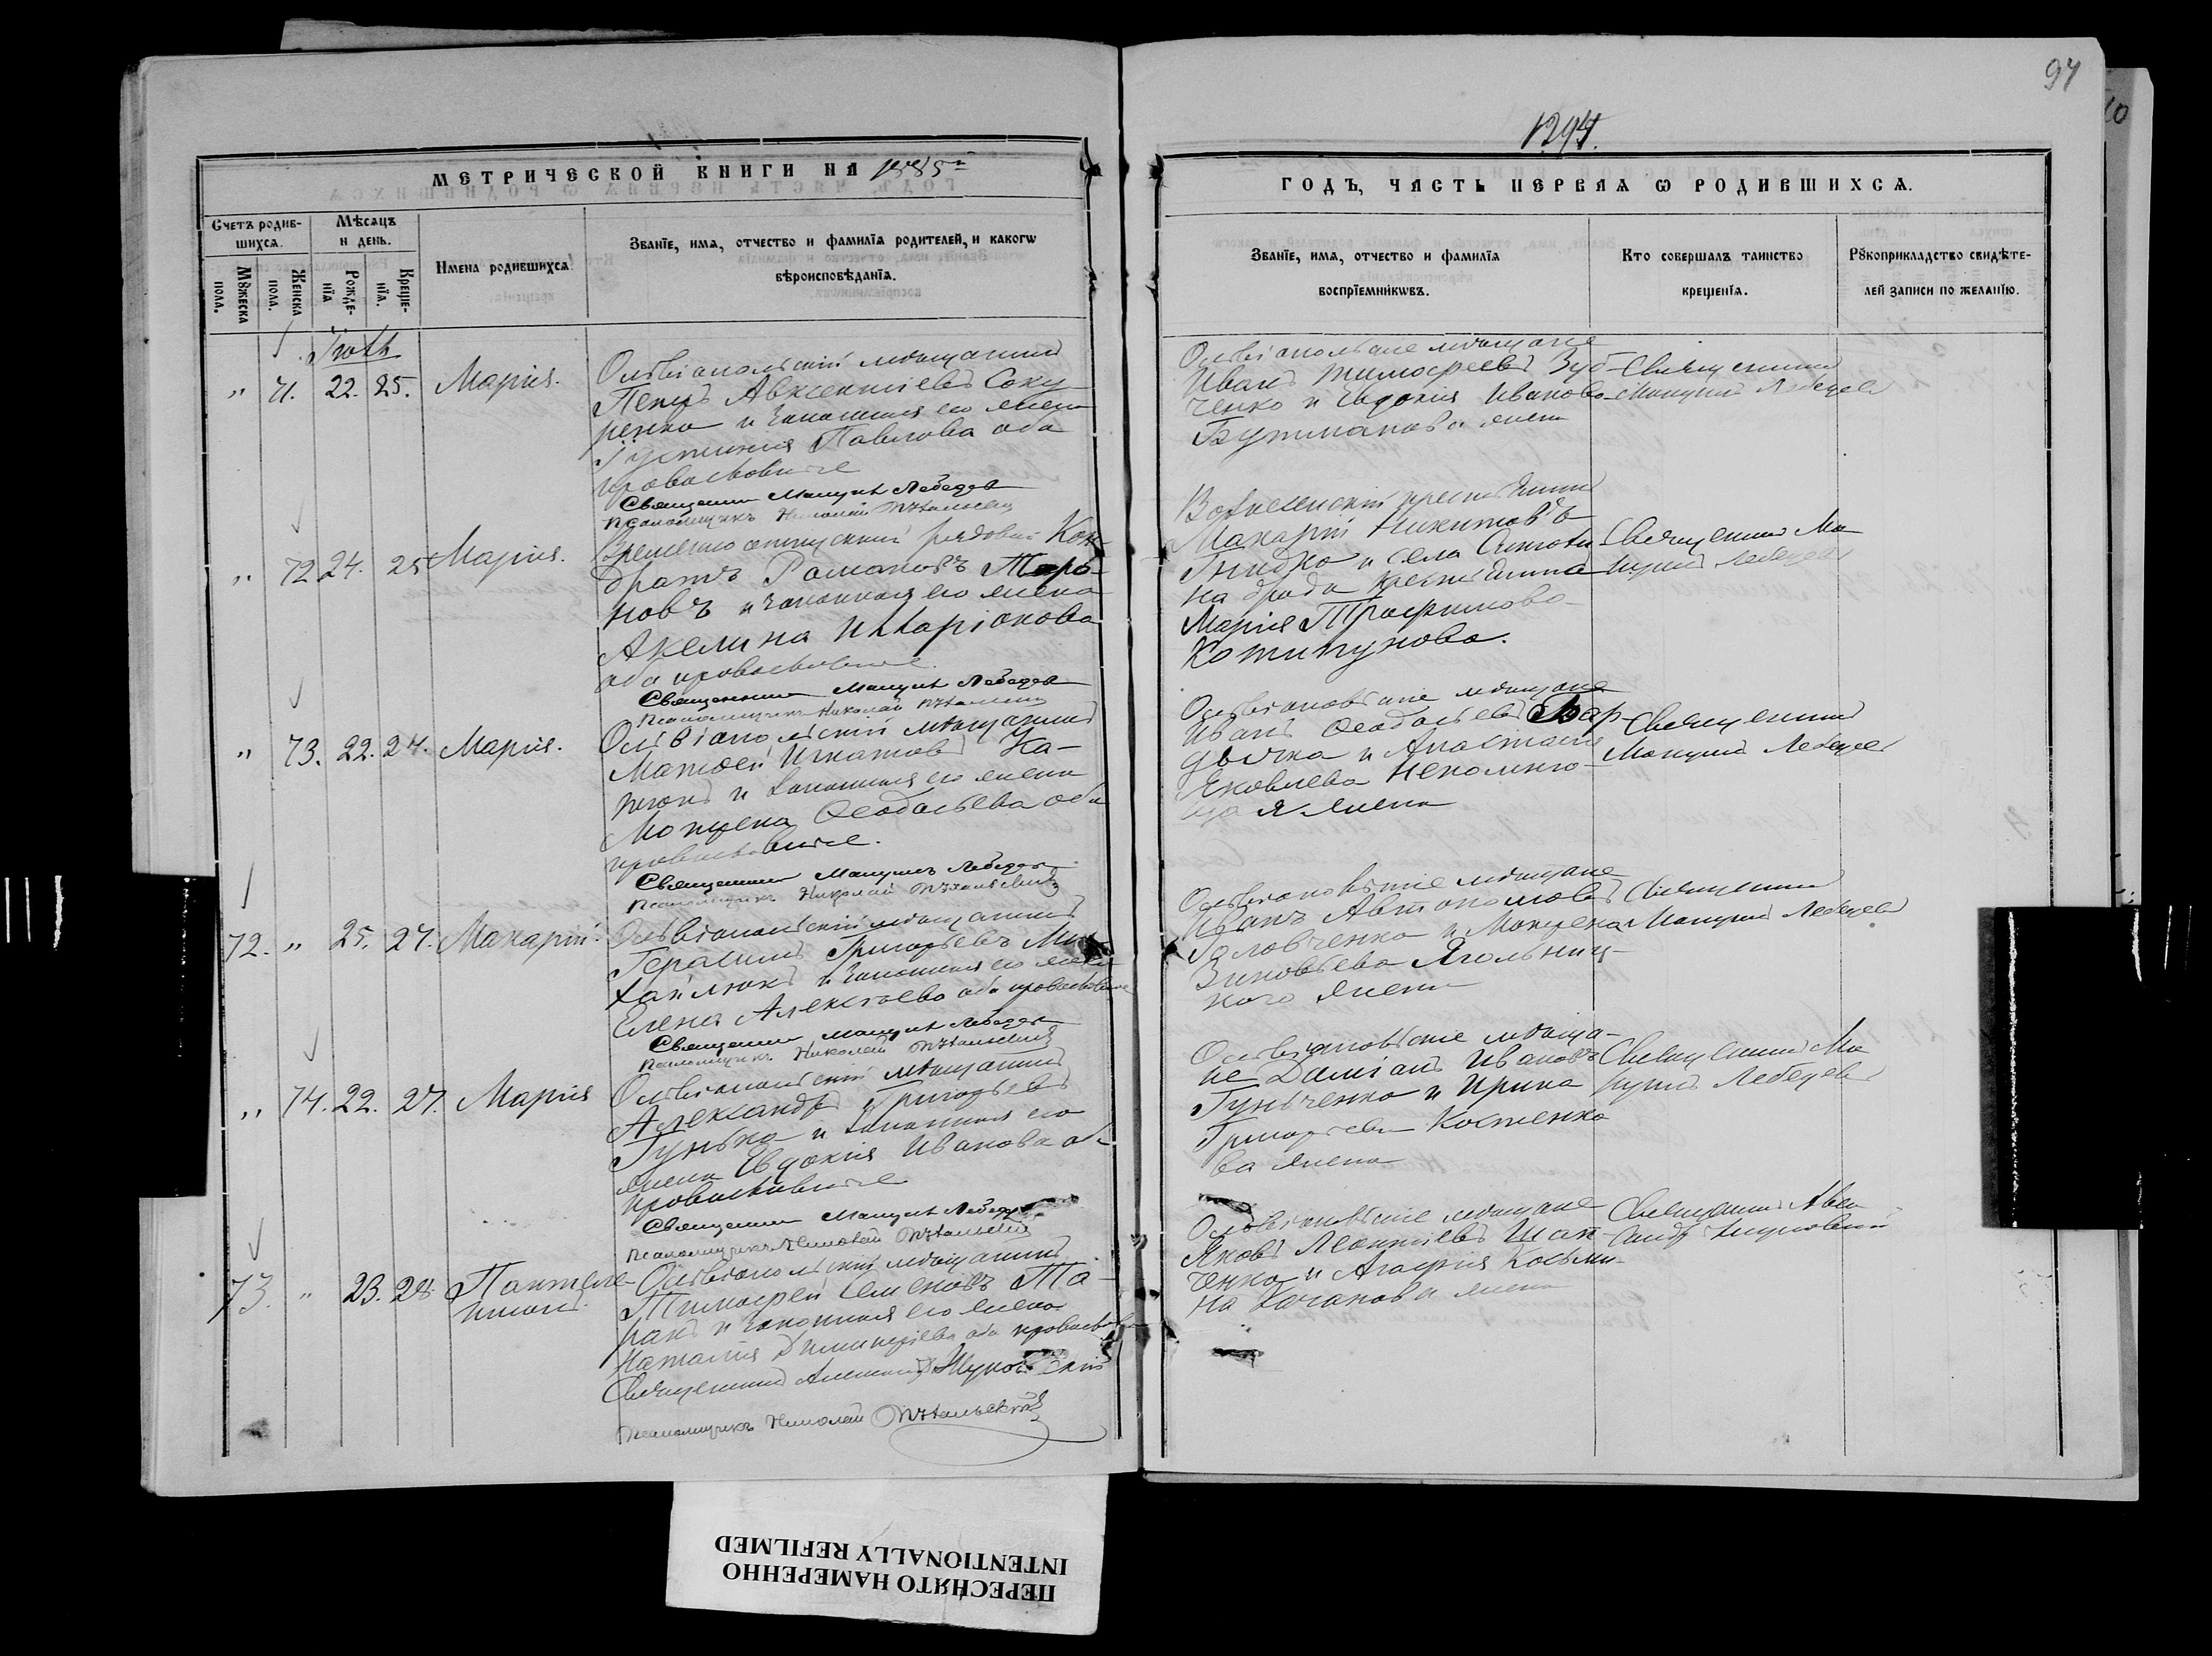 94
1294.
МЕТРИЧЕСКОЙ КНИГИ НА 1885й
ГОДЪ, ЧАСТЬ ПЕРВАЯ Ѡ РОДИВШИХСѦ.
Счетъ родив-
шихсѧ.
Мѣсѧцъ
и день.
Мꙋжеска
пола.
Женска
пола.
Рожде-
нїѧ
Креще-
нїѧ.
Имена родившихсѧ.
Званїе, имѧ, отчество и фамилїѧ родителей, и какогѡ
вѣроисповѣданїѧ.
Званїе, имѧ, отчество и фамилїѧ
воспрїемникѡвъ.
Кто совершалъ таинство
крещенїѧ.
Рꙋкоприкладство свидѣте-
лей записи по желанїю.
Іюль
" 71. 22. 25. Марія.
Ольвіопольскій мѣщанинъ
Петръ Авксентіевъ Соку
ренко и законная его жена
Іустинія Павлова оба
православные
Священникъ Мануилъ Лебедевъ
Псаломщикъ Николай
Ольвіопольскіе мѣщане
Иванъ Тимофеевъ Зуб-
ченко и Евдокія Иванова
жена
Священникъ
Мануилъ Лебедевъ
" 72 24. 25 Марія.
Временно отпускный рядовой Кон-
дратъ Романовъ Тара-
новъ и законная его жена
Акелина Иларіонова
оба православные.
Священникъ Мануилъ Лебедевъ
Псаломщикъ Николай
Вознесенскій крестьянинъ
Макарій Никитовъ
Гнидко и села Синюхи-
на брода крестьянка
Марія Трофимова
Священникъ Ма
нуилъ Лебедевъ
" 73. 22. 24. Марія.
Ольвіопольскій мѣщанинъ
Матвей Игнатовъ Ка-
и законная его жена
Мокрена Феодосьева оба
православные.
Священникъ Мануилъ Лебедевъ
Псаломщикъ Николай
Ольвіопольскіе мѣщане
Иванъ Феодосьевъ Бар-
и Анастасія
Яковлева Непомню-
щая жена
Священникъ
Мануилъ Лебедевъ
72. " 25. 27. Макарій.
Ольвіопольскій мѣщанинъ
Герасимъ Григорьевъ Ми-
хайлюкъ и законная его жена
Елена Алексѣева оба православные
Священникъ Мануилъ Лебедевъ
Псаломщикъ Николай
Ольвіопольскіе мѣщане
Иванъ Автономовъ
Головченко и Мокрена
Зиновьева Ягольниц-
кого жена
Священникъ
Мануилъ Лебедевъ
" 74. 22. 27. Марія
Ольвіопольскій мѣщанинъ
Александръ Григорьевъ
Гунько и законная его
жена Евдокія Иванова оба
православные
Священникъ Мануилъ Лебедевъ
Псаломщикъ Николай
Ольвіопольскіе мѣща-
не Даміанъ Ивановъ
Гунченко и Ирина
Григорьева Костенко
ва жена
Священникъ Ма
нуилъ Лебедевъ
73. " 23. 28. Пантеле-
имонъ.
Ольвіопольскій мѣщанинъ
Тимофей Семеновъ Та-
ранъ и законная его жена
Наталія Димитріева оба православные
Священникъ Александръ
Псаломщикъ Николай
Ольвіопольскіе мѣщане
Яковъ Леонтіевъ Шап-
ченко и Агафія Косьми-
на Качанова жена
Священникъ Алек
сандръ
ПЕРЕСНЯТО НАМЕРЕННО
INTENTIONALLY REFILMED